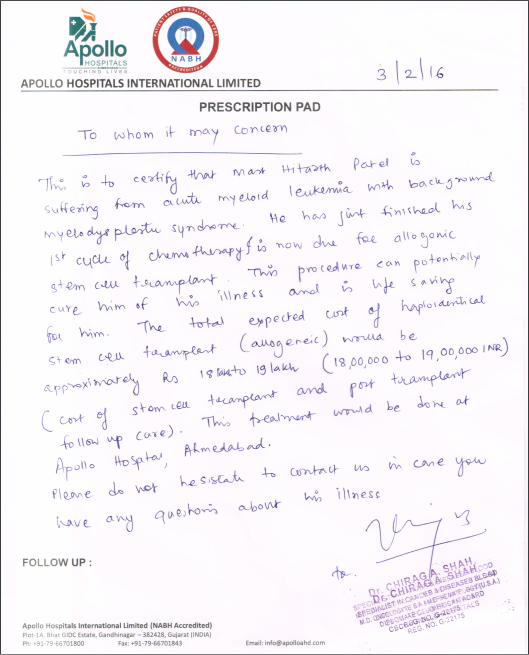 Apollo
HOSPITALS
TOUCHING LIVES
NABH
APOLLO HOSPITALS INTERNATIONAL LIMITED
3/2/16
PRESCRIPTION PAD
To whom it may concern
This is to certify that Mast Hitarth Patel is
suffering from acute myeloid leukemia with background
myelodysplastic syndrome. He has just finished his
1st cycle of chemotherapy & is now due for allogonic
stem cell transplant. This procedure can potentially
cure him of his illness and is life saving
for him. The total expected cost of haploidentical
stem cell transplant (allogeneic) would be
approximately Rs 18 lakh to 19 lakh (18,00,000 to 19,00,000 INR)
(cost of stem cell transplant and post transplant
follow up care). This treatment would be done at
Apollo Hospital, Ahmedabad.
Please do not hesistate to contact us in case you
have any questions about his illness
FOLLOW UP :
Dr. CHIRAG A. SHAH
REG. NO. G-22175
Apollo Hospitals International Limited (NABH Accredited)
Plot-1A, Bhat GIDC Estate, Gandhinagar – 382428, Gujarat (INDIA)
Ph: +91-79-66701800 Fax: +91-79-66701843 Email: info@apolloahd.com